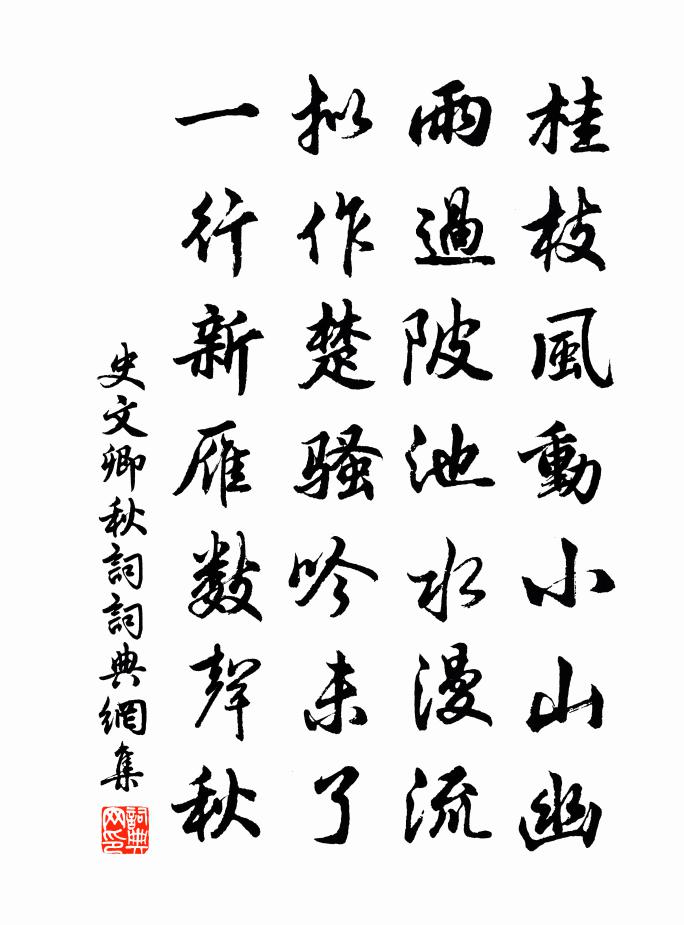 桂枝風動小山幽
雨過陂池水漫流
拟作楚騷吟未了
一行新雁數聲秋
史文卿秋詞詞典網集
詞典网印